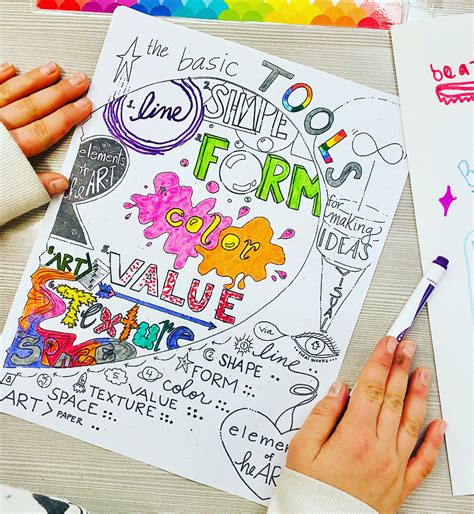 the basic
TOOLS
for
making
IDEAS
VISUAL
1. line
2. SHAPE
FORM
color
VALUE
Texture
SPACE
elements
of
theART
ART>
via
line
SHAPE
FORM
color
VALUE
TEXTURE
SPACE
PAPER
ART>
THAT WORKS...
element
of
heART
bea